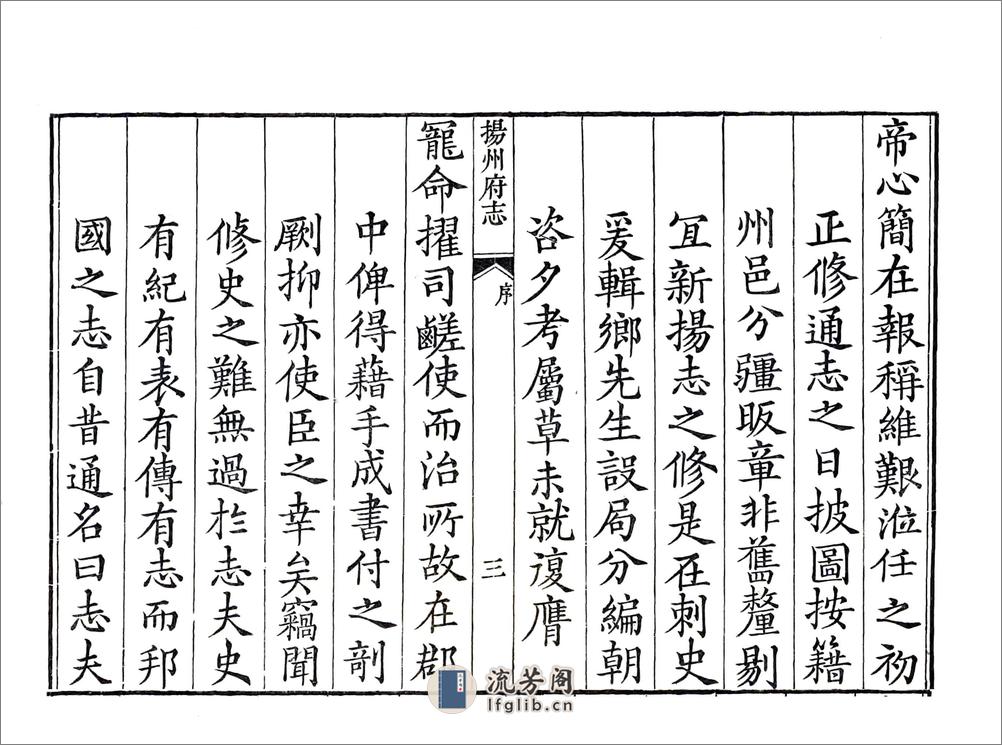 帝心簡在報稱維艱涖任之初
正修通志之日披圖按籍
州邑分疆版章非舊釐剔
宜新揚志之修是在刺史
爰輯鄉先生設局分編朝
咨夕考屬草未就復膺
揚州府志
序
三
寵命擢司鹺使而治所故在郡
中俾得藉手成書付之剞
劂抑亦使臣之幸矣竊聞
修史之難無過於志夫史
有紀有表有傳有志而邦
國之志自昔通名曰志夫
流芳阁
lfglib.cn